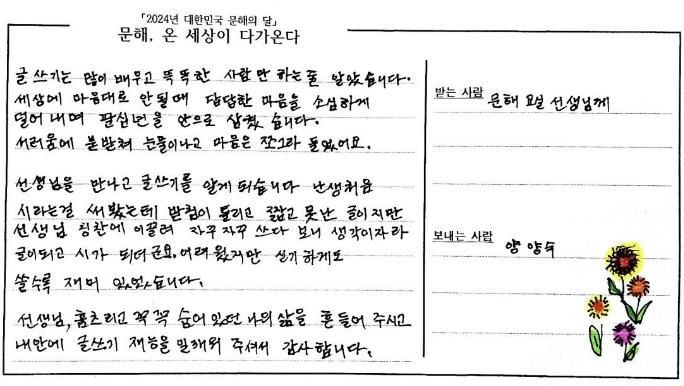 「2024년 대한민국 문해의 달」
문해, 온 세상이 다가온다
글쓰기는 많이 배우고 똑똑한 사람만 하는줄 알았습니다.
세상에 마음대로 안될때 답답한 마음을 소심하게
덜어내며 팔십년을 안으로 삼켰습니다.
서러움에 북받쳐 눈물이나고 마음은 쪼그라 들었어요.
선생님을 만나고 글쓰기를 알게 되습니다 난생처음
시라는걸 써봤는데 받침이 틀리고 짧고 못난 글이지만
선생님 칭찬에 이끌려 자꾸자꾸 쓰다 보니 생각이자라
글이되고 시가 되더군요. 어려웠지만 신기하게도
쓸수록 재미 있었습니다.
선생님, 움츠리고 꼭꼭 숨어있던 나의삶을 흔들어 주시고
내안에 글쓰기 재능을 일깨워 주셔서 감사합니다.
받는 사람
문해 교실 선생님께
보내는 사람
양양숙